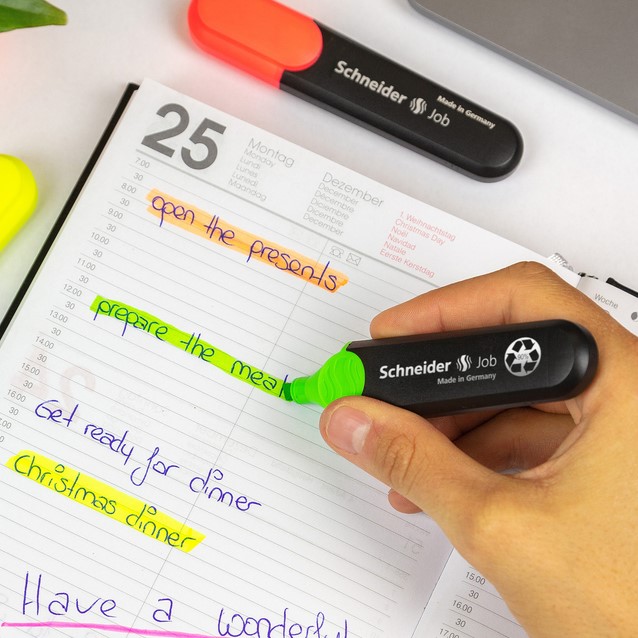 Schneider Job
Made in Germany
25
Montag
Monday
Lundi
Lunes
Lunedì
Maandag
Dezember
December
Décembre
Diciembre
Dicembre
December
1. Weihnachtstag
Christmas Day
Noël
Navidad
Natale
Eerste Kerstdag
Woche
7.00
30
8.00
30
9.00
30
10.00
30
11.00
30
12.00
30
13.00
30
14.00
30
15.00
30
16.00
30
30
open the presents
prepare the meal
Get ready for dinner
Christmas dinner
Have a wonderful
Schneider Job
Made in Germany
15.00
30
16.00
30
17.00